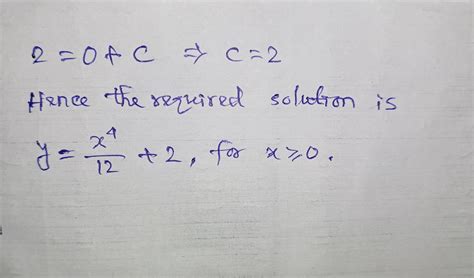 2 = 0 + C ⇒ C = 2
Hence the required solution is
y = x⁴/12 + 2, for x ≥ 0.